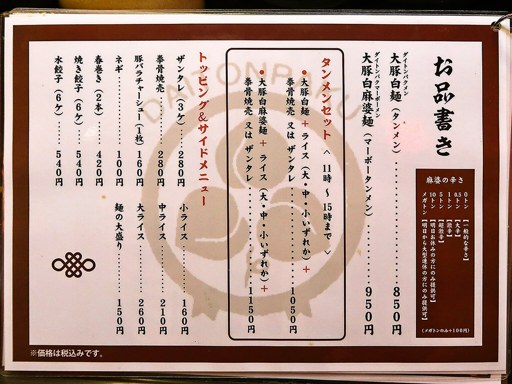 お品書き
麻婆の辛さ
0トン【一般的な辛さ】
0.5トン【大辛】
1トン【激辛】
5トン【超激辛】
10トン【明日お休みの方にのみ提供可】
メガトン【明日から大型連休の方にのみ提供可】
(メガトンのみ+100円)
ダイトンパクメン
大豚白麺(タンメン)……850円
ダイトンパクマーボーメン
大豚白麻婆麺(マーボータンメン)……950円
タンメンセット〈11時〜15時まで〉
●大豚白麺+ライス(大・中・小いずれか)+
拳骨焼売 又は ザンタレ……1050円
●大豚白麻婆麺+ライス(大・中・小いずれか)+
拳骨焼売 又は ザンタレ……1150円
トッピング&サイドメニュー
ザンタレ(3ケ)……280円
拳骨焼売……280円
豚バラチャーシュー(1枚)……160円
ネギ……100円
春巻き(2本)……420円
焼き餃子(6ケ)……540円
水餃子(6ケ)……540円
小ライス……160円
中ライス……210円
大ライス……260円
麺の大盛り……150円
DAITONPAKU
※価格は税込みです。